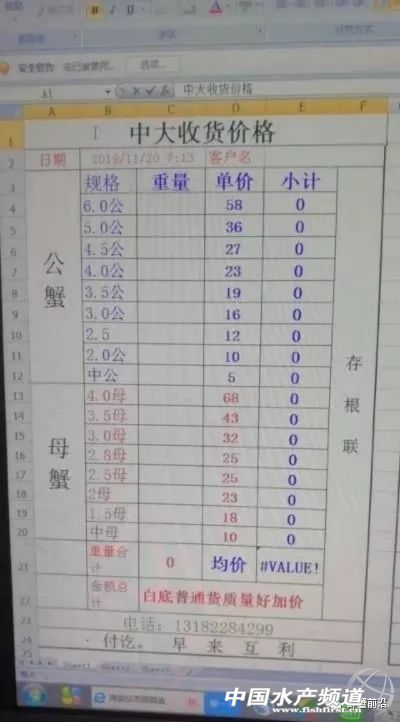 安全警告
选项...
A1
中大收货价格
A B C D E F
1 中大收货价格
2 日期 2019/11/20 7:15 客户名
3 规格 重量 单价 小计
公蟹
4 6.0公 58 0
5 5.0公 36 0
6 4.5公 27 0
7 4.0公 23 0
8 3.5公 19 0
9 3.0公 16 0
10 2.5 12 0
11 2.0公 10 0
12 中公 5 0
存根联
母蟹
13 4.0母 68 0
14 3.5母 43 0
15 3.0母 32 0
16 2.8母 25 0
17 2.5母 25 0
18 2母 23 0
19 1.5母 18 0
20 中母 10 0
21 重量合计 0 均价 #VALUE!
22 金额总计 白底普通货质量好加价
23 电话: 13182284299
24 付讫。 早来互利
Sheet1 Sheet2 Sheet3
输入
中国水产频道
www.fishfirst.cn
蟹前沿